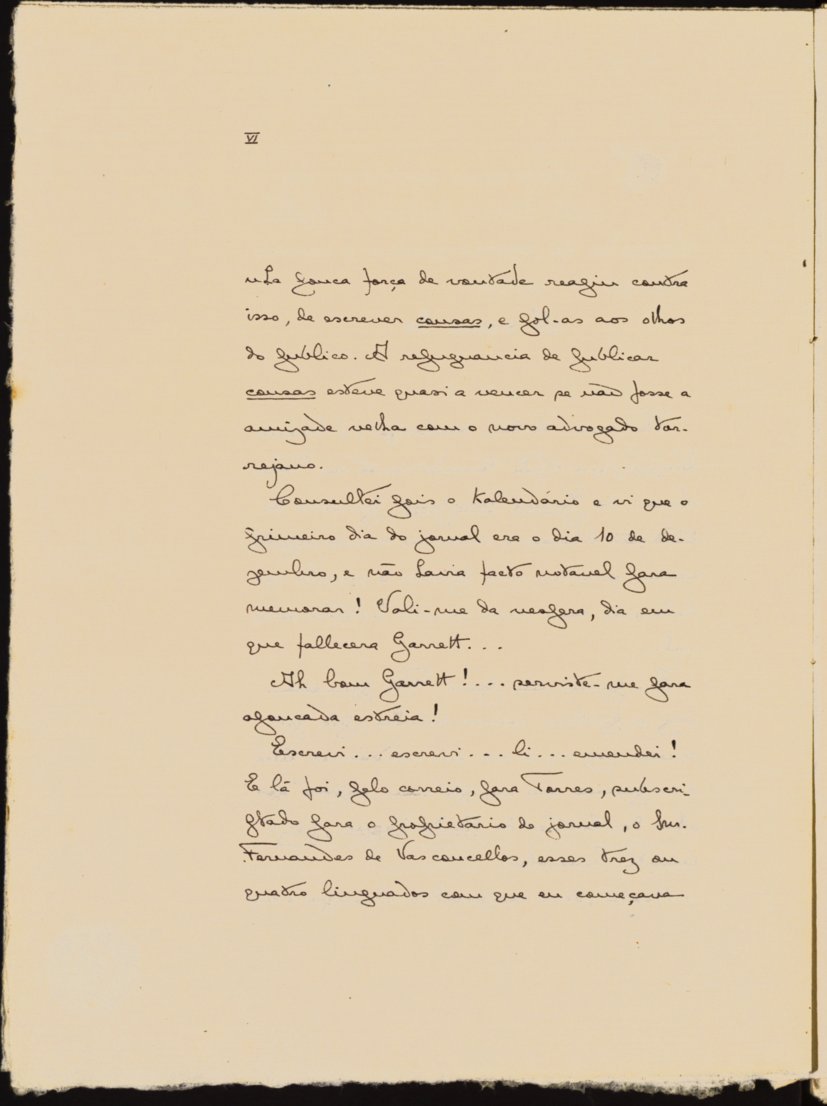 VI
nha pouca força de vontade reagiu contra
isso, de escrever cousas, e pol-as aos olhos
do publico. A repugnancia de publicar
cousas esteve quasi a vencer se não fosse a
amizade velha com o novo advogado tor-
rejano.
Consultei pois o Kalendário e vi que o
primeiro dia do jornal era o dia 10 de de-
zembro, e não havia facto notavel para
memorar! Vali-me da vespera, dia em
que fallecera Garrett...
Ah bom Garrett!... serviste-me para
apoucada estreia!
Escrevi... escrevi... li... emendei!
E lá foi, pelo correio, para Torres, subscri-
ptado para o proprietario do jornal, o Snr.
Fernandes de Vasconcellos, esses trez ou
quatro linguados com que eu começava